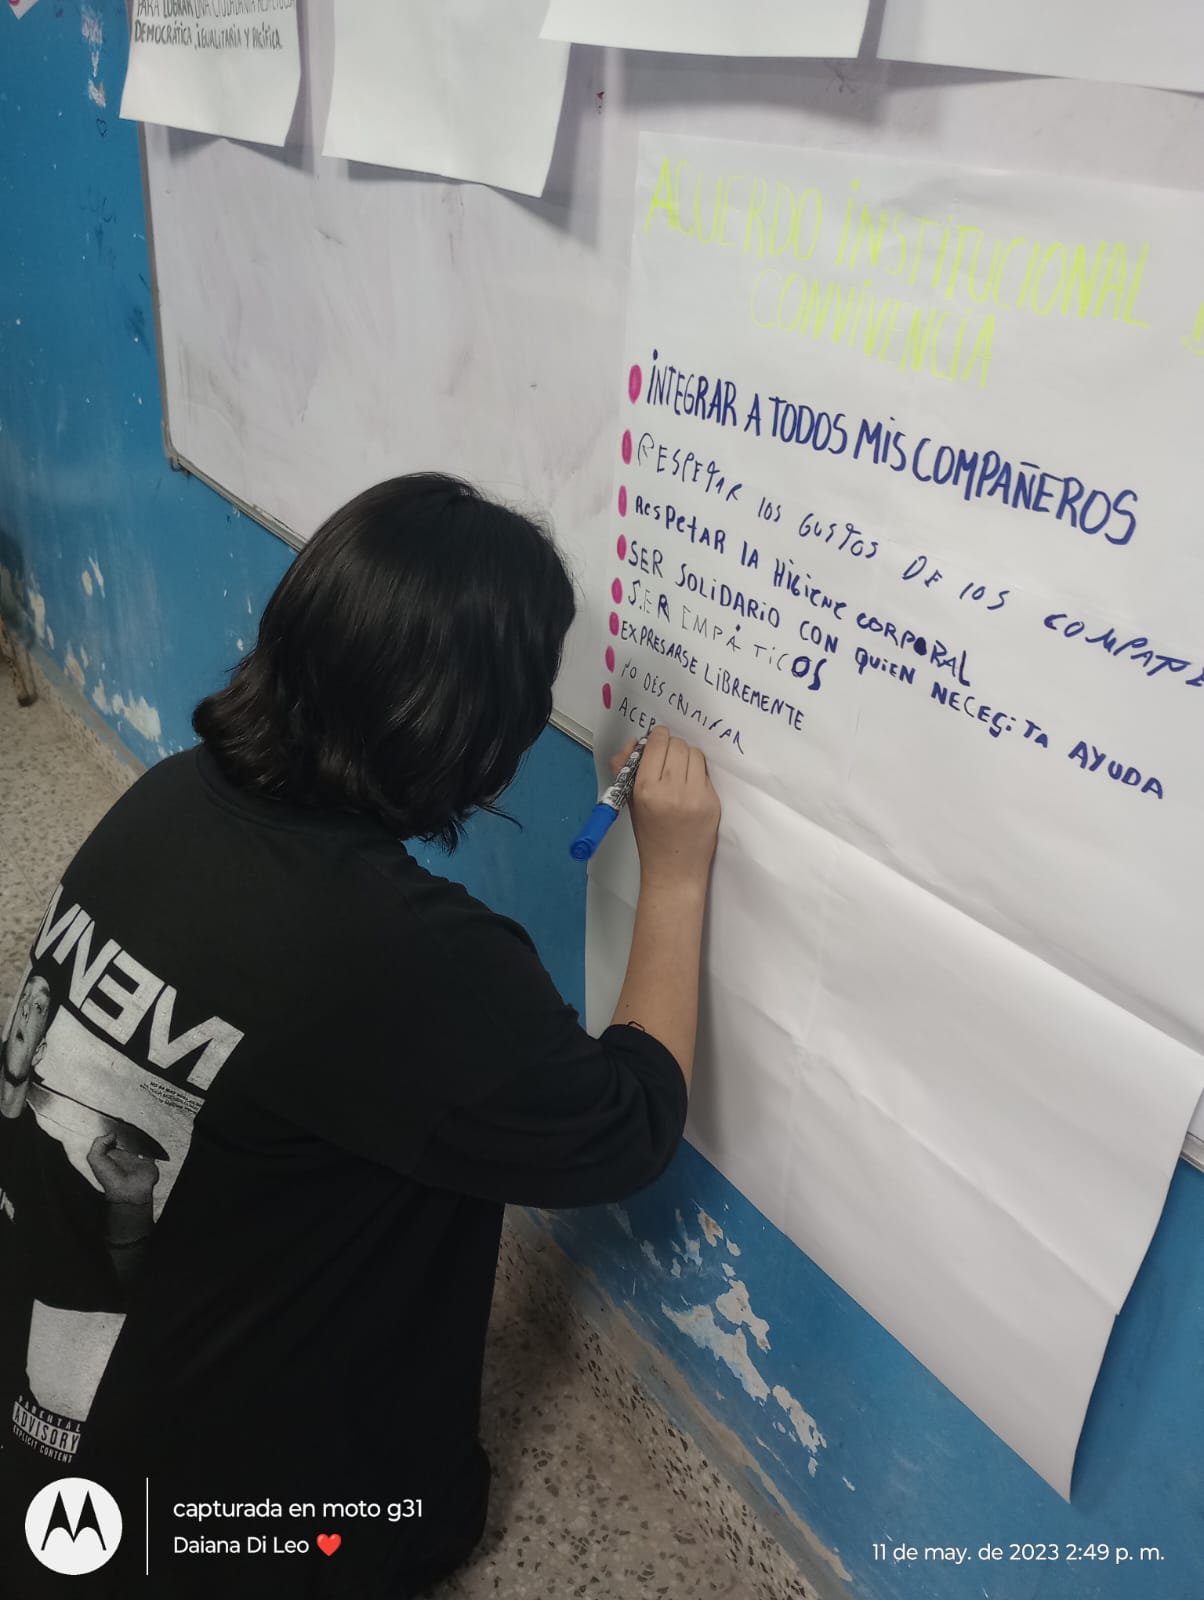 PARA LOGRAR UNA CIUDADANÍA
DEMOCRÁTICA, iGUALITARIA Y PACÍFICA.
ACUERDO iNSTiTUCIONAL
CONViVENCiA
iNTEGRAR A TODOS MiS COMPAÑEROS
RESPETAR lOS GUSTOS DE lOS COMPAÑE
RESPETAR lA HIGIENE CORPORAL
SER SOLiDARIO CON QUIEN NECESiTA AYUDA
SER EMPÁTiCOS
EXPRESARSE LiBREMENTE
NO DESCRIMINAR
ACEP
MINEM
PARENTAL
ADVISORY
EXPLICIT CONTENT
capturada en moto g31
Daiana Di Leo ❤️
11 de may. de 2023 2:49 p. m.